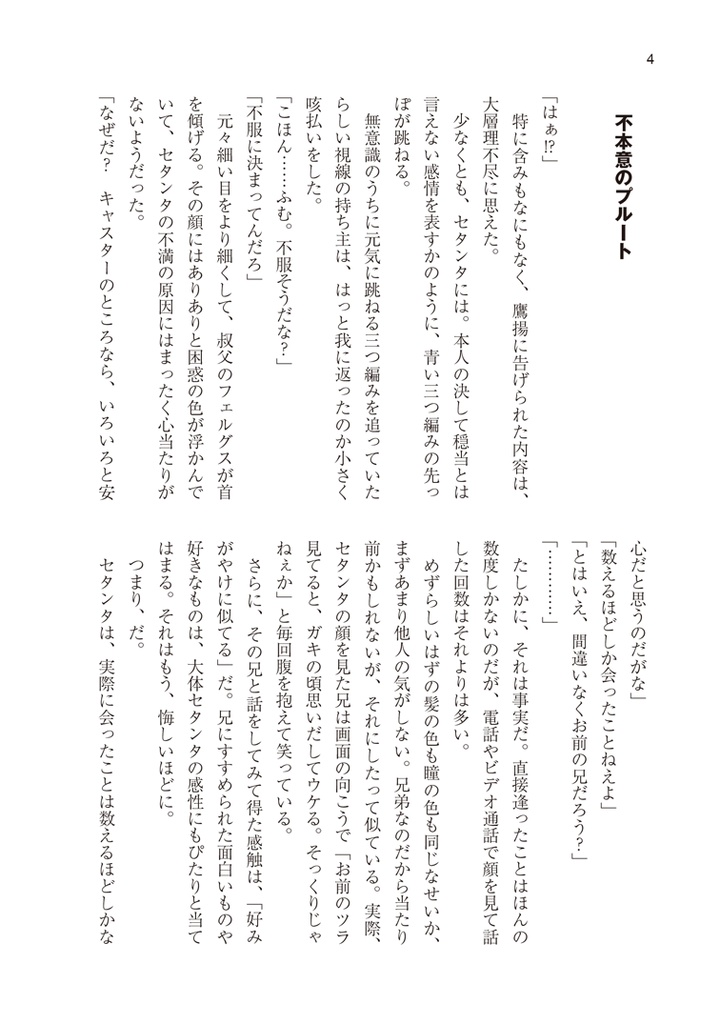 4
不本意のプルート
「はぁ⁉」
　特に含みもなにもなく、鷹揚に告げられた内容は、
大層理不尽に思えた。
　少なくとも、セタンタには。本人の決して穏当とは
言えない感情を表すかのように、青い三つ編みの先っ
ぽが跳ねる。
　無意識のうちに元気に跳ねる三つ編みを追っていた
らしい視線の持ち主は、はっと我に返ったのか小さく
咳払いをした。
「こほん……ふむ。不服そうだな？」
「不服に決まってんだろ」
　元々細い目をより細くして、叔父のフェルグスが首
を傾げる。その顔にはありありと困惑の色が浮かんで
いて、セタンタの不満の原因にはまったく心当たりが
ないようだった。
「なぜだ？　キャスターのところなら、いろいろと安
心だと思うのだがな」
「数えるほどしか会ったことねえよ」
「とはいえ、間違いなくお前の兄だろう？」
「…………」
　たしかに、それは事実だ。直接逢ったことはほんの
数度しかないのだが、電話やビデオ通話で顔を見て話
した回数はそれよりは多い。
　めずらしいはずの髪の色も瞳の色も同じなせいか、
まずあまり他人の気がしない。兄弟なのだから当たり
前かもしれないが、それにしたって似ている。実際、
セタンタの顔を見た兄は画面の向こうで「お前のツラ
見てると、ガキの頃思いだしてウケる。そっくりじゃ
ねぇか」と毎回腹を抱えて笑っている。
　さらに、その兄と話をしてみて得た感触は、「好み
がやけに似てる」だ。兄にすすめられた面白いものや
好きなものは、大体セタンタの感性にもぴたりと当て
はまる。それはもう、悔しいほどに。
　つまり、だ。
　セタンタは、実際に会ったことは数えるほどしかな